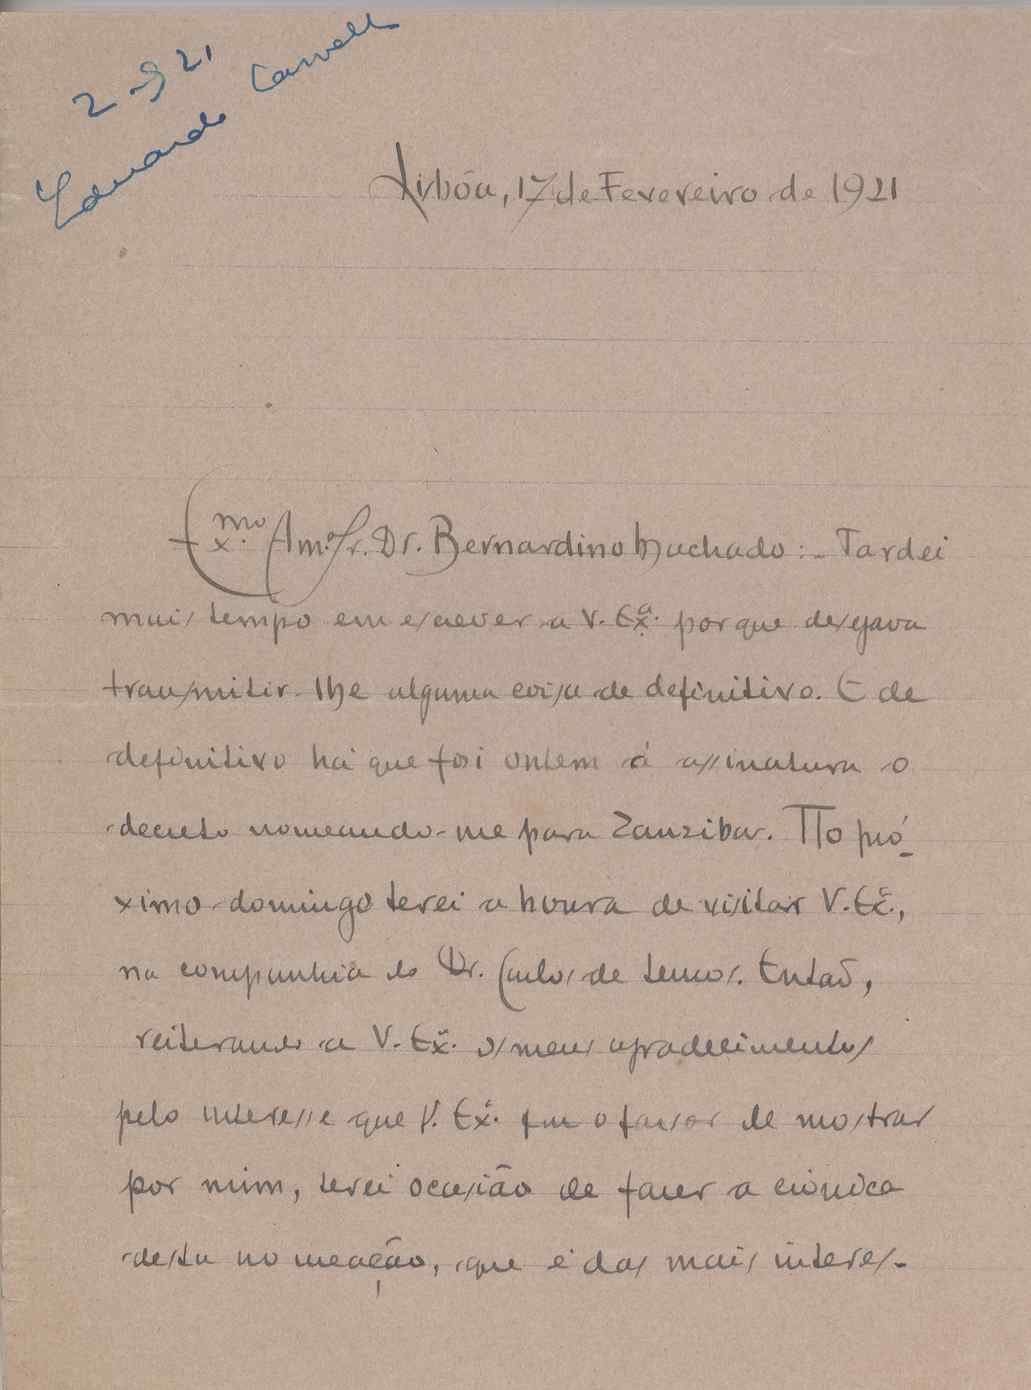 2-9 21
Eduardo Carvalho
Lisbôa, 17 de Fevereiro de 1921
Exmo. Amo. Sr. Dr. Bernardino Machado:- Tardei
mais tempo em escrever a V. Exª. porque desejava
transmitir-lhe alguma coisa de definitivo. E de
definitivo há que foi ontem á assinatura o
decreto nomeando-me para Zanzibar. No pró-
ximo domingo terei a honra de visitar V. Exª.,
na companhia do Dr. Carlos de Lemos. Então,
reiterando a V. Exª. os meus agradecimentos
pelo interesse que V. Exª. fez o favor de mostrar
por mim, terei ocasião de fazer a crónica
desta nomeação, que é das mais interes-